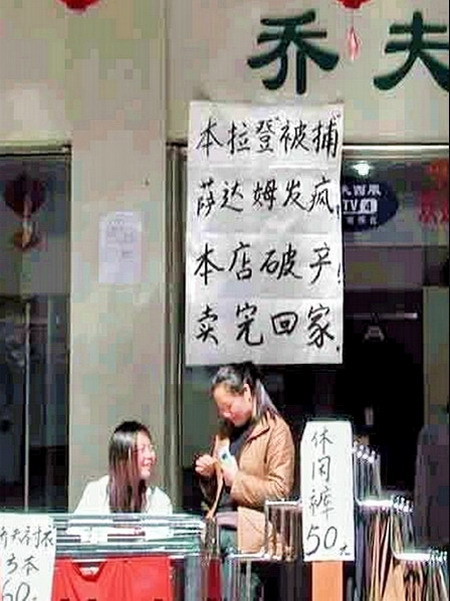 乔夫
本拉登"被捕"
萨达姆发疯!
本店破产!
卖完回家.
TV4
休闲裤
50元
乔夫衬衣
60元